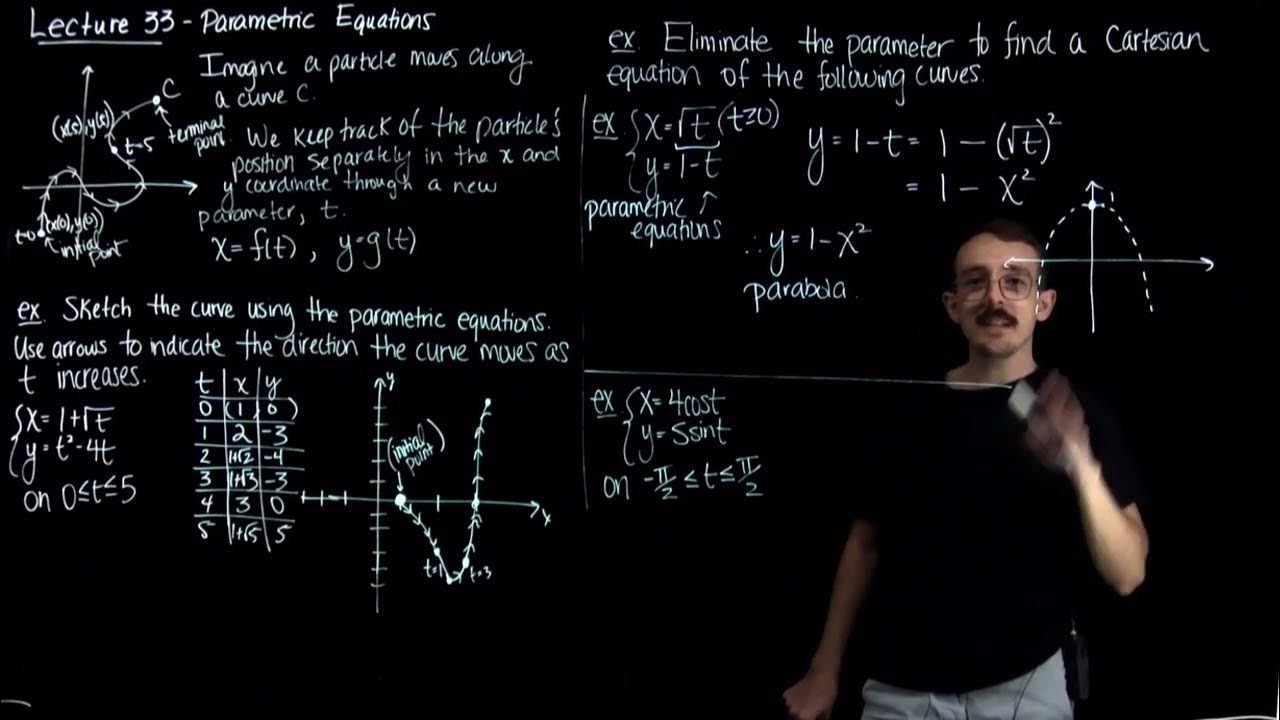 Lecture 33 - Parametric Equations
Imagine a particle moves along
a curve C.
We keep track of the particle's
position separately in the x and
y coordinate through a new
parameter, t.
x=f(t), y=g(t)
C
terminal
point
(x(5),y(5))
t=5
(x(0),y(0))
t=0
initial
point
ex. Sketch the curve using the parametric equations.
Use arrows to indicate the direction the curve moves as
t increases.
{x=1+√t
{y=t²-4t
on 0≤t≤5
t x y
0 (1, 0)
1 2 -3
2 1+√2 -4
3 1+√3 -3
4 3 0
5 1+√5 5
y
(initial
point)
x
t=1
t=3
ex. Eliminate the parameter to find a Cartesian
equation of the following curves.
ex {x=√t (t≥0)
{y=1-t
parametric
equations
y=1-t= 1-(√t)²
= 1-x²
∴ y=1-x²
parabola.
1
ex {x=4cost
{y=5sint
on -π/2≤t≤π/2